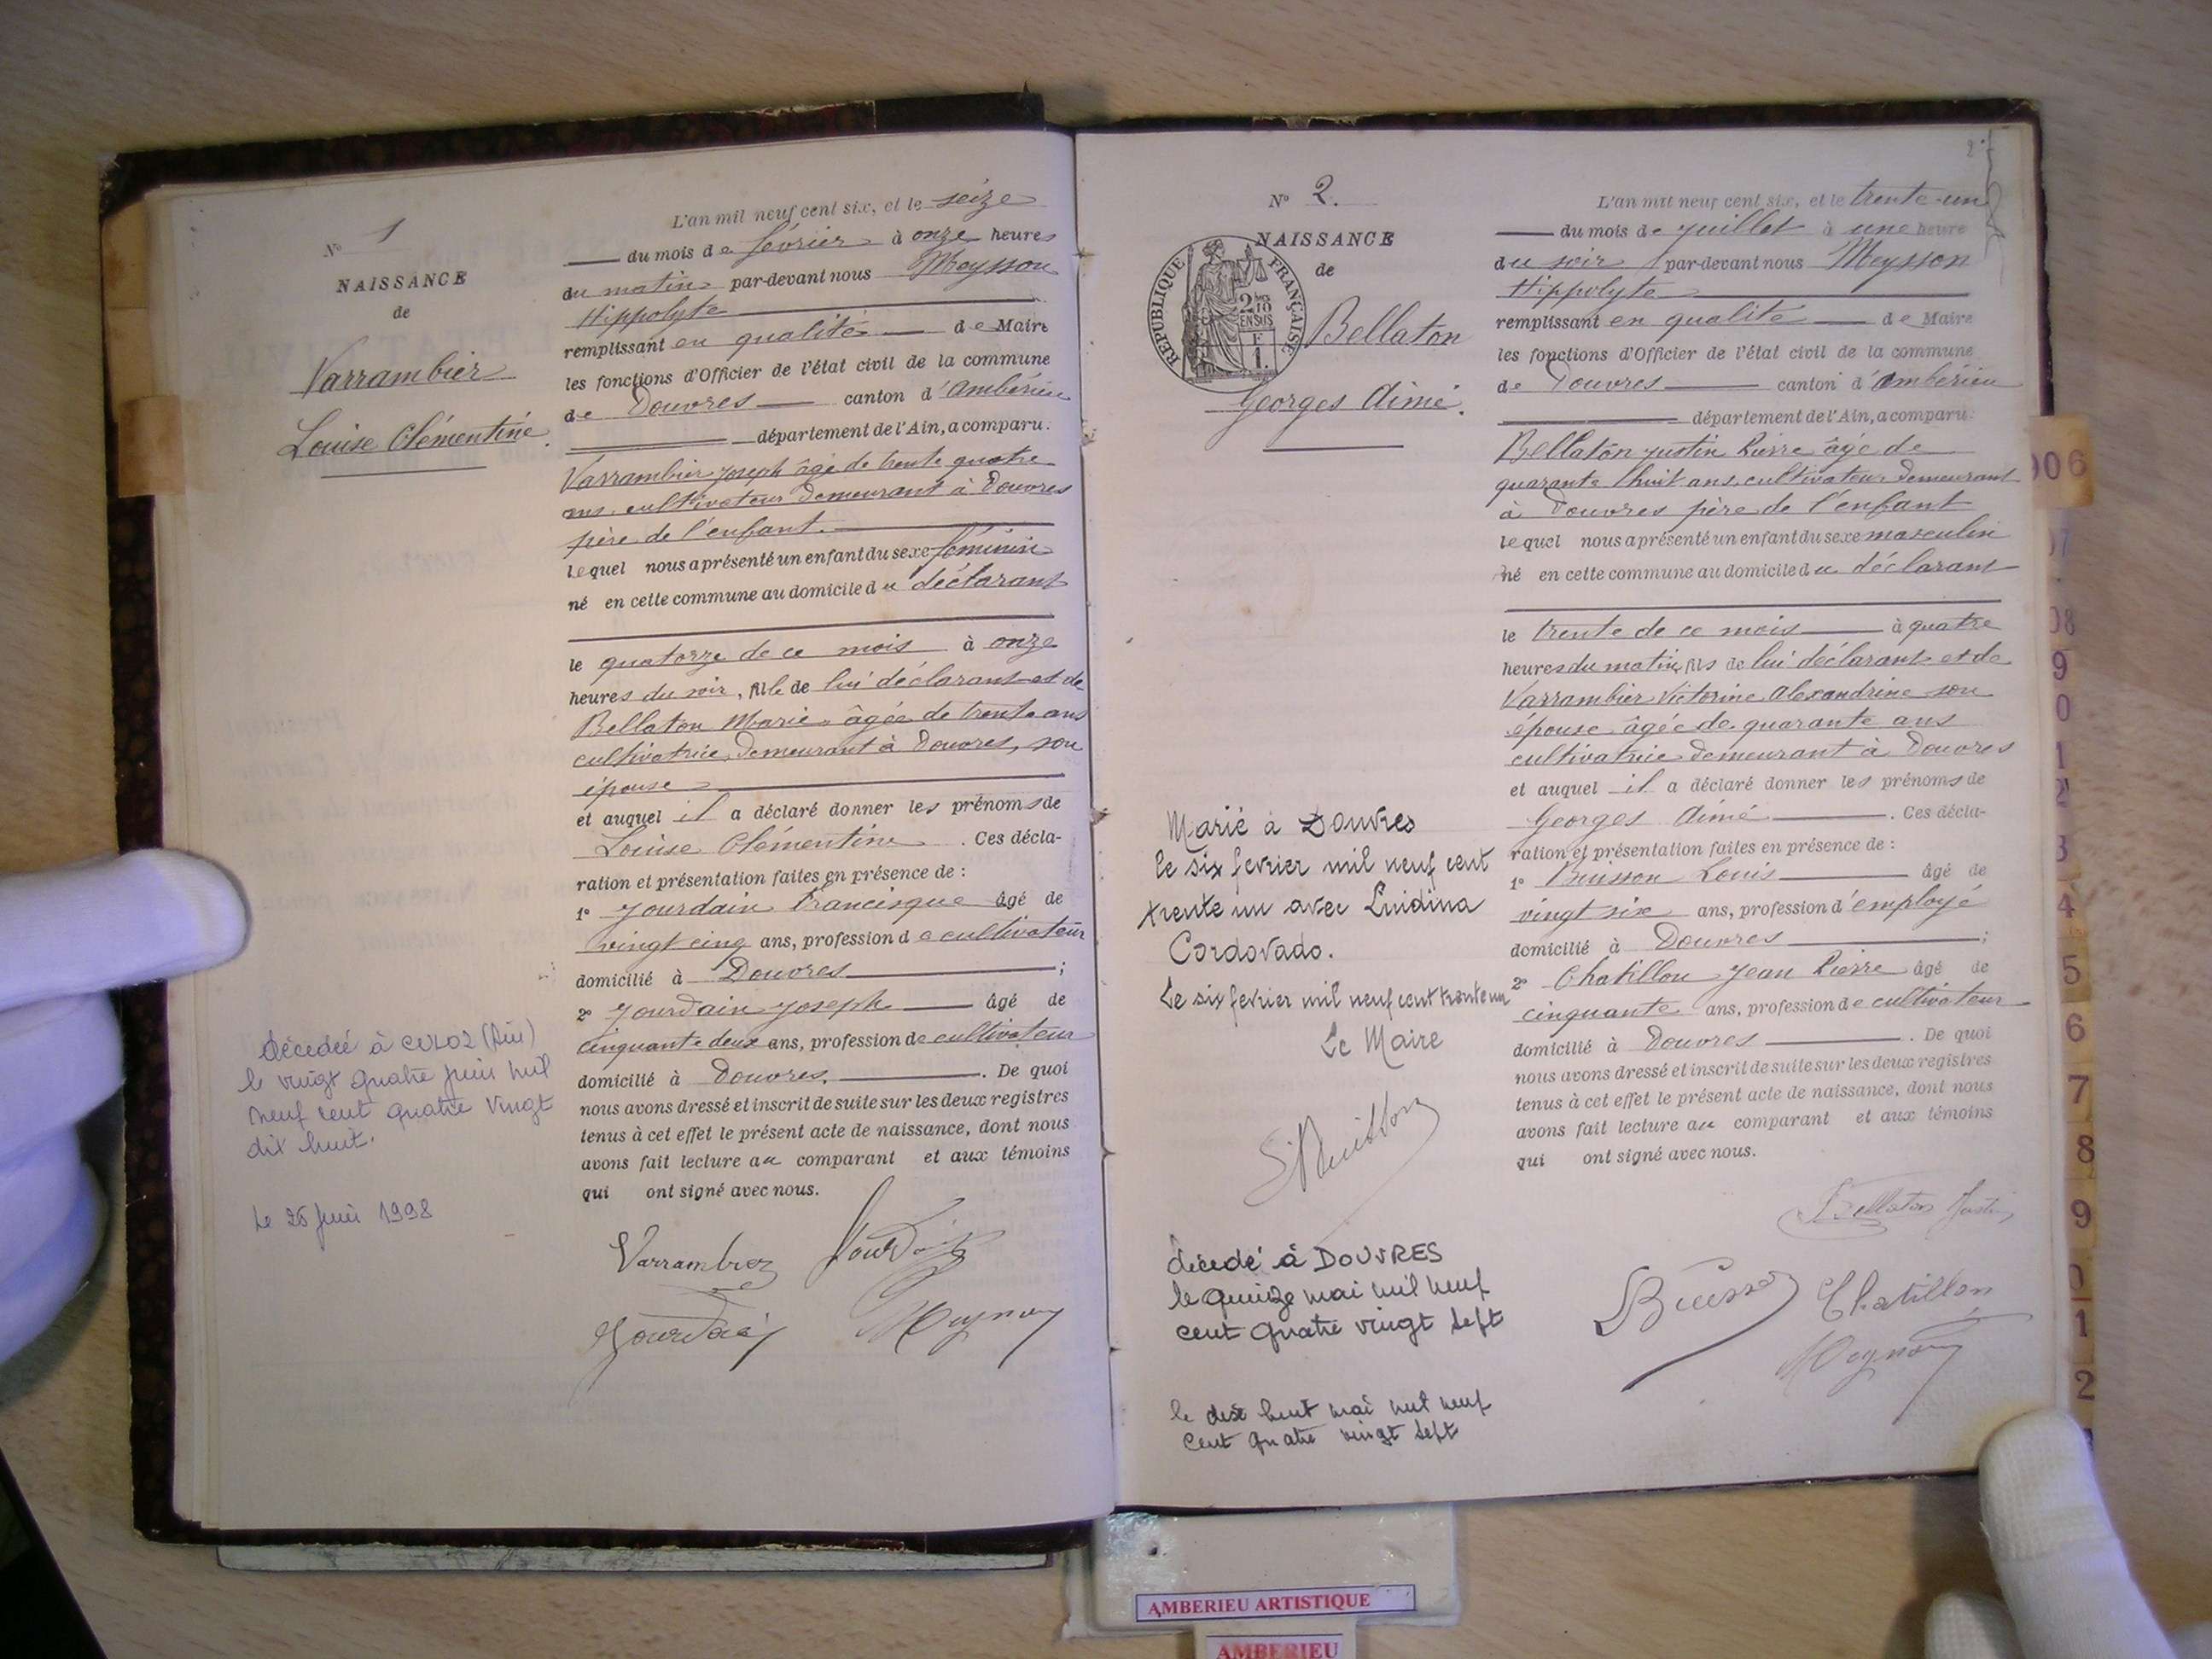 N° 1
NAISSANCE
de
Varrambier
Louise Clémentine.
décédée à CULOZ (Ain)
le vingt quatre juin mil
neuf cent quatre vingt
dix huit.
Le 26 juin 1998
L'an mil neuf cent six, et le seize
du mois de février à onze heures
du matin par-devant nous Meysson
Hippolyte
remplissant en qualité de Maire
les fonctions d'Officier de l'état civil de la commune
de Douvres canton d'Ambérieu
département de l'Ain, a comparu:
Varrambier Joseph âgé de trente quatre
ans, cultivateur demeurant à Douvres
père de l'enfant.
lequel nous a présenté un enfant du sexe féminin
né en cette commune au domicile du déclarant
le quatorze de ce mois à onze
heures du soir, fille de lui déclarant et de
Bellaton Marie âgée de trente ans
cultivatrice, demeurant à Douvres, son
épouse
et auquel il a déclaré donner les prénoms de
Louise Clémentine. Ces décla-
ration et présentation faites en présence de :
1° Jourdain Francisque âgé de
vingt cinq ans, profession de cultivateur
domicilié à Douvres ;
2° Jourdain Joseph âgé de
cinquante deux ans, profession de cultivateur
domicilié à Douvres. De quoi
nous avons dressé et inscrit de suite sur les deux registres
tenus à cet effet le présent acte de naissance, dont nous
avons fait lecture au comparant et aux témoins
qui ont signé avec nous.
Varrambier Jourdain
Jourdain Meysson
2
N° 2.
NAISSANCE
de
RÉPUBLIQUE FRANÇAISE
Bellaton
Georges Aimé.
Marié à Douvres
le six fevrier mil neuf cent
trente un avec Luidina
Cordovado.
Le six fevrier mil neuf cent trente un
Le Maire
décédé à DOUVRES
le quinze mai mil neuf
cent quatre vingt sept
le dix huit mai mil neuf
cent quatre vingt sept
L'an mil neuf cent six, et le trente-un
du mois de juillet à une heure
du soir par-devant nous Meysson
Hippolyte
remplissant en qualité de Maire
les fonctions d'Officier de l'état civil de la commune
de Douvres canton d'Ambérieu
département de l'Ain, a comparu:
Bellaton Justin Pierre âgé de
quarante huit ans, cultivateur demeurant
à Douvres père de l'enfant
lequel nous a présenté un enfant du sexe masculin
né en cette commune au domicile du déclarant
le trente de ce mois à quatre
heures du matin, fils de lui déclarant et de
Varrambier Victorine Alexandrine son
épouse âgée de quarante ans
cultivatrice demeurant à Douvres
et auquel il a déclaré donner les prénoms de
Georges Aimé. Ces décla-
ration et présentation faites en présence de :
1° Buisson Louis âgé de
vingt six ans, profession d'employé
domicilié à Douvres ;
2° Chatillon Jean Pierre âgé de
cinquante ans, profession de cultivateur
domicilié à Douvres. De quoi
nous avons dressé et inscrit de suite sur les deux registres
tenus à cet effet le présent acte de naissance, dont nous
avons fait lecture au comparant et aux témoins
qui ont signé avec nous.
Bellaton Justin
Buisson Chatillon
Meysson
906
07
08
9
0
1
2
3
4
5
6
7
8
9
0
1
2
AMBERIEU ARTISTIQUE
AMBERIEU